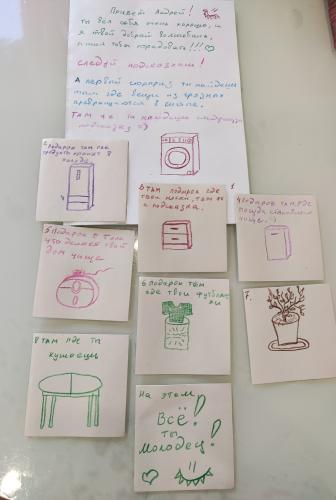 Привет Андрей!
ты вёл себя очень хорошо, и
я твой добрый волшебник
пришёл тебя порадовать!!!
следуй подсказкам!
А первый сюрприз ты найдёшь
там где вещи из грязных
превращаются в чистые.
Там же ты найдёшь следующую
подсказку =)
1.
2 Подарок там где
продукты хранят в
холоде
3 Там подарок где
твои носки, там же
и подсказка.
4 Подарок там где
посуда становится
чище :)
5 Подарок в том,
что делает твой
дом чище
6 Подарок там
где твои футболки
7.
8 Там где ты
кушаешь
На этом
Всё!
ты
Молодец!